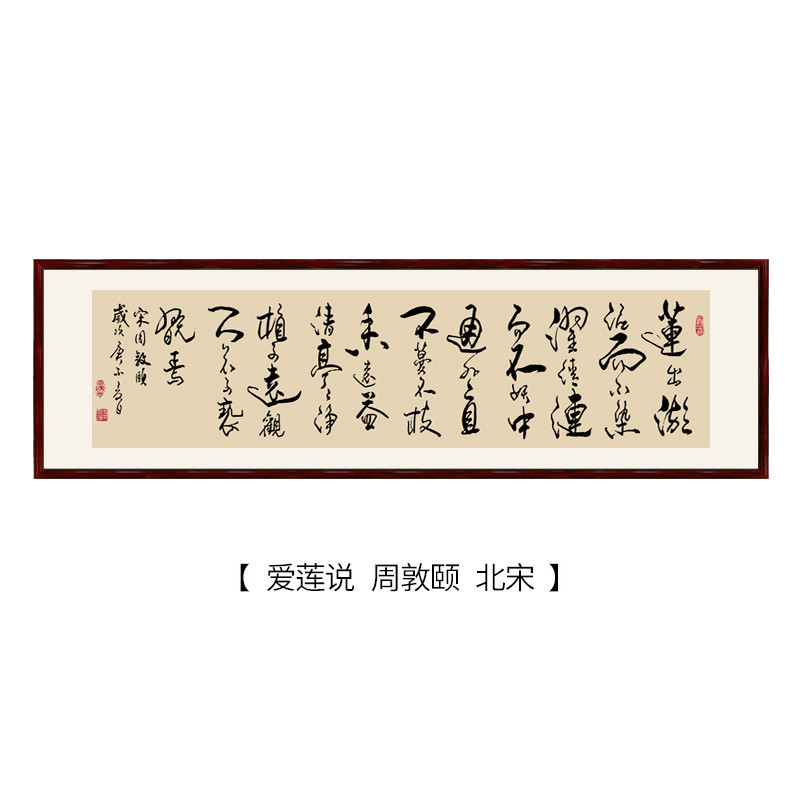 蓮出淤
泥而不染
濯清漣
而不妖中
通外直
不蔓不枝
香遠益
清亭々淨
植可遠觀
而不可褻
翫焉
宋周敦頤
【 爱莲说 周敦颐 北宋 】